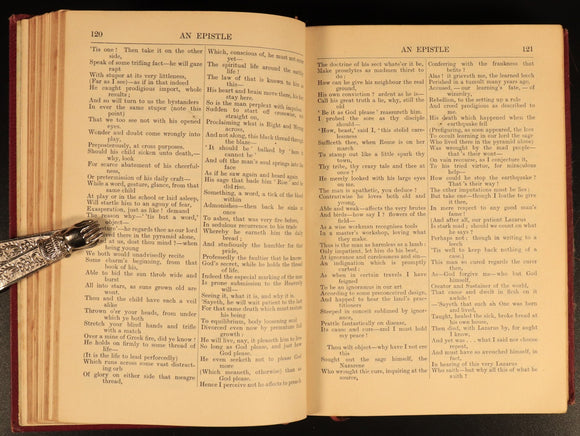 120
AN EPISTLE
'Tis one! Then take it on the other
side,
Speak of some trifling fact—he will gaze
rapt
With stupor at its very littleness,
(Far as I see)—as if in that indeed
He caught prodigious import, whole
results;
And so will turn to us the bystanders
In ever the same stupor (note this
point)
That we too see not with his opened
eyes.
Wonder and doubt come wrongly into
play,
Preposterously, at cross purposes.
Should his child sicken unto death,—
why, look
For scarce abatement of his cheerful-
ness,
Or pretermission of his daily craft—
While a word, gesture, glance, from that
same child
At play or in the school or laid asleep,
Will startle him to an agony of fear,
Exasperation, just as like! demand
The reason why—'tis but a word,
object
gesture'—he regards thee as our lord
lived there in the pyramid alone,
at us, dost thou mind?—when
being young
We both would unadvisedly recite
Some charm's beginning, from that
book of his,
Able to bid the sun throb wide and
burst
All into stars, as suns grown old are
wont.
Thou and the child have each a veil
alike
Thrown o'er your heads, from under
which ye both
Stretch your blind hands and trifle
with a match
Over a mine of Greek fire, did ye know!
He holds on firmly to some thread of
life—
(It is the life to lead perforcedly)
Which runs across some vast distract-
ing orb
Of glory on either side that meagre
thread,
Which, conscious of, he must not enter
yet—
The spiritual life around the earthly
life!
The law of that is known to him as
this—
His heart and brain move there, his feet
stay here.
So is the man perplext with impulses
Sudden to start off crosswise, not
straight on,
Proclaiming what is Right and Wrong
across,
And not along, this black thread through
the blaze—
'It should be' balked by 'here it
cannot be'
And oft the man's soul springs into the
face
As if he saw again and heard again
His sage that bade him 'Rise' and he
did rise.
Something, a word, a tick of the blood
within
Admonishes—then back he sinks at
once
To ashes, that was very fire before,
In sedulous recurrence to his trade
Whereby he earneth him the daily
bread;
And studiously the humbler for that
pride,
Professedly the faultier that he knows
God's secret, while he holds the thread
of life.
Indeed the especial marking of the man
Is prone submission to the Heavenly
will—
Seeing it, what it is, and why it is.
'Sayeth, he will wait patient to the last
For that same death which must restore
his being
To equilibrium, body loosening soul
Divorced even now by premature full
growth:
He will live, nay, it pleaseth him to live
So long as God please, and just how
God please.
He even seeketh not to please God
more
(Which meaneth, otherwise) than as
God please.
Hence I perceive not he affects to preach
AN EPISTLE
121
The doctrine of his sect whate'er it be,
Make proselytes as madmen thirst to
do;
How can he give his neighbour the real
ground,
His own conviction? ardent as he is—
Call his great truth a lie, why, still the
old
'Be it as God please' reassureth him.
I probed the sore as thy disciple
should—
'How, beast,' said I, 'this stolid care-
lessness
Sufficeth thee, when Rome is on her
march
To stamp out like a little spark thy
town,
Thy tribe, thy crazy tale and thee at
once?'
He merely looked with his large eyes
on me.
The man is apathetic, you deduce?
Contrariwise he loves both old and
young,
Able and weak—affects the very brutes
And birds—how say I? flowers of the
field—
As a wise workman recognises tools
In a master's workshop, loving what
they make.
Thus is the man as harmless as a lamb:
Only impatient, let him do his best,
At ignorance and carelessness and sin—
An indignation which is promptly
curbed:
As when in certain travels I have
feigned
To be an ignoramus in our art
According to some preconceived design,
And happed to hear the land's prac-
titioners
Steeped in conceit sublimed by ignor-
ance,
Prattle fantastically on disease,
Its cause and cure—and I must hold
my peace!
Thou wilt object—why have I not ere
this
Sought out the sage himself, the
Nazarene
Who wrought this cure, inquiring at the
source,
Conferring with the frankness that
befits?
Alas! it grieveth me, the learned leech
Perished in a tumult many years ago,
Accused,—our learning's fate,—of
wizardry,
Rebellion, to the setting up a rule
And creed prodigious as described to
me.
His death which happened when the
earthquake fell
(Prefiguring, as soon appeared, the loss
To occult learning in our lord the sage
Who lived there in the pyramid alone)
Was wrought by the mad people—
that's their wont—
On vain recourse, as I conjecture it,
To his tried virtue, for miraculous
help—
How could he stop the earthquake?
That's their way!
The other imputations must be lies;
But take one—though I loathe to give
it thee,
In mere respect to any good man's
fame!
(And after all, our patient Lazarus
Is stark mad; should we count on what
he says?
Perhaps not: though in writing to a
leech
'Tis well to keep back nothing of a
case.)
This man so cured regards the curer
then,
As—God forgive me—who but God
himself,
Creator and Sustainer of the world,
That came and dwelt in flesh on it
awhile!
—'Sayeth that such an One was born
and lived,
Taught, healed the sick, broke bread at
his own house,
Then died, with Lazarus by, for aught
I know,
And yet was . . . what I said nor choose
repeat,
And must have so avouched himself, in
fact,
In hearing of this very Lazarus
Who saith—but why all this of what he
saith?